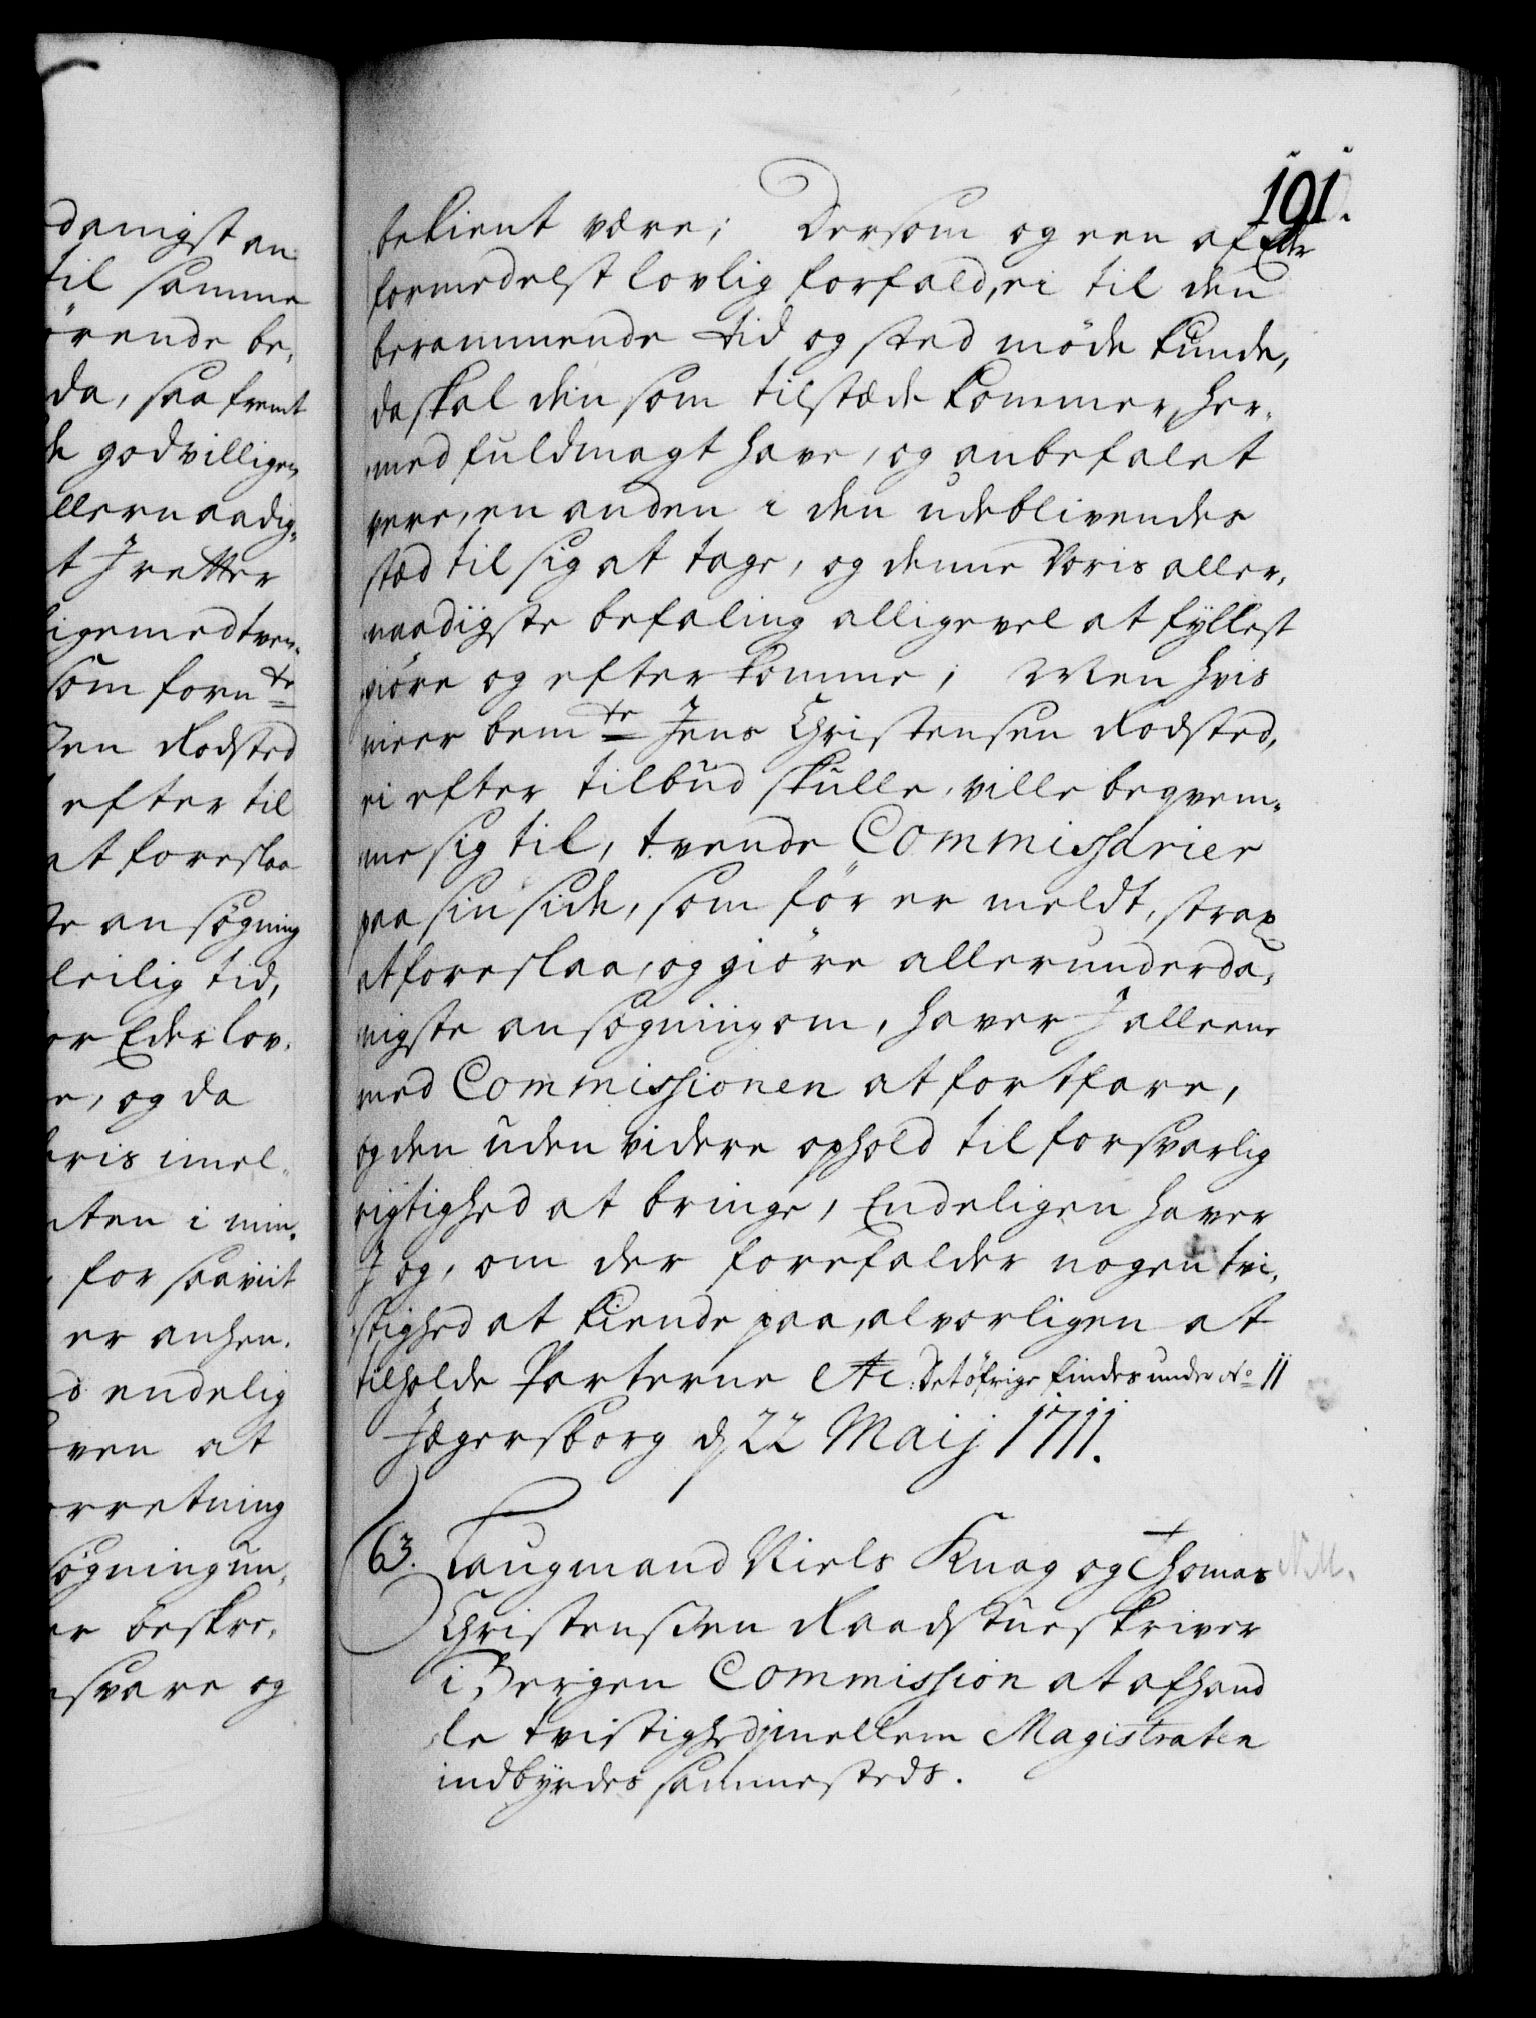 191.
damigst an
til samme
örende be,
da, saa fremt
godvilligen
llernaadig,
t I retter
ligemedtven,
som forn te
sen Rodsted
efter til
at foreslaa
te ansøgning
leilig tid,
or Eder lov,
e, og da
bris imel,
ten i min,
for saavit
er anhen,
d endelig
ven at
rretning
søgning un,
er beskre,
svare og
bekient være; Dersom og een af Eder
formedelst lovlig forfald, ei til den
berammende tid og sted möde kunde,
da skal den som tilstæde kommer, her,
med fuldmagt have, og anbefalet
vere, en anden i den udeblivendes
stæd til sig at tage, og denne Voris aller,
naadigste befaling alligevel at fyllest
giöre og efterkomme; Men hvis
meer bem te Jens Christensen Rodsted,
ei efter tilbud skulle, ville beqvem,
me sig til, tvende Commissarier
paa sin side, som för er meldt, strax
at foreslaa, og giöre allerunderda,
nigste ansøgning om, haver I alleene
med Commissionen at fortfare,
og den uden videre ophold til forsvarlig
rigtighed at bringe, Endeligen haver
I og, om der forefalder nogen tvi,
stighed at kiende paa, alvorligen at
tilholde Parterne etc: Det öfrige findes under No 11
Jægersborg d 22 Maij 1711.
63. Laugmand Niels Knag og Thomas N.M.
Christensen Raadstueskriver
i Bergen Commission at afhand
le tvistighed imellem Magistraten
indbyrdes sammesteds.